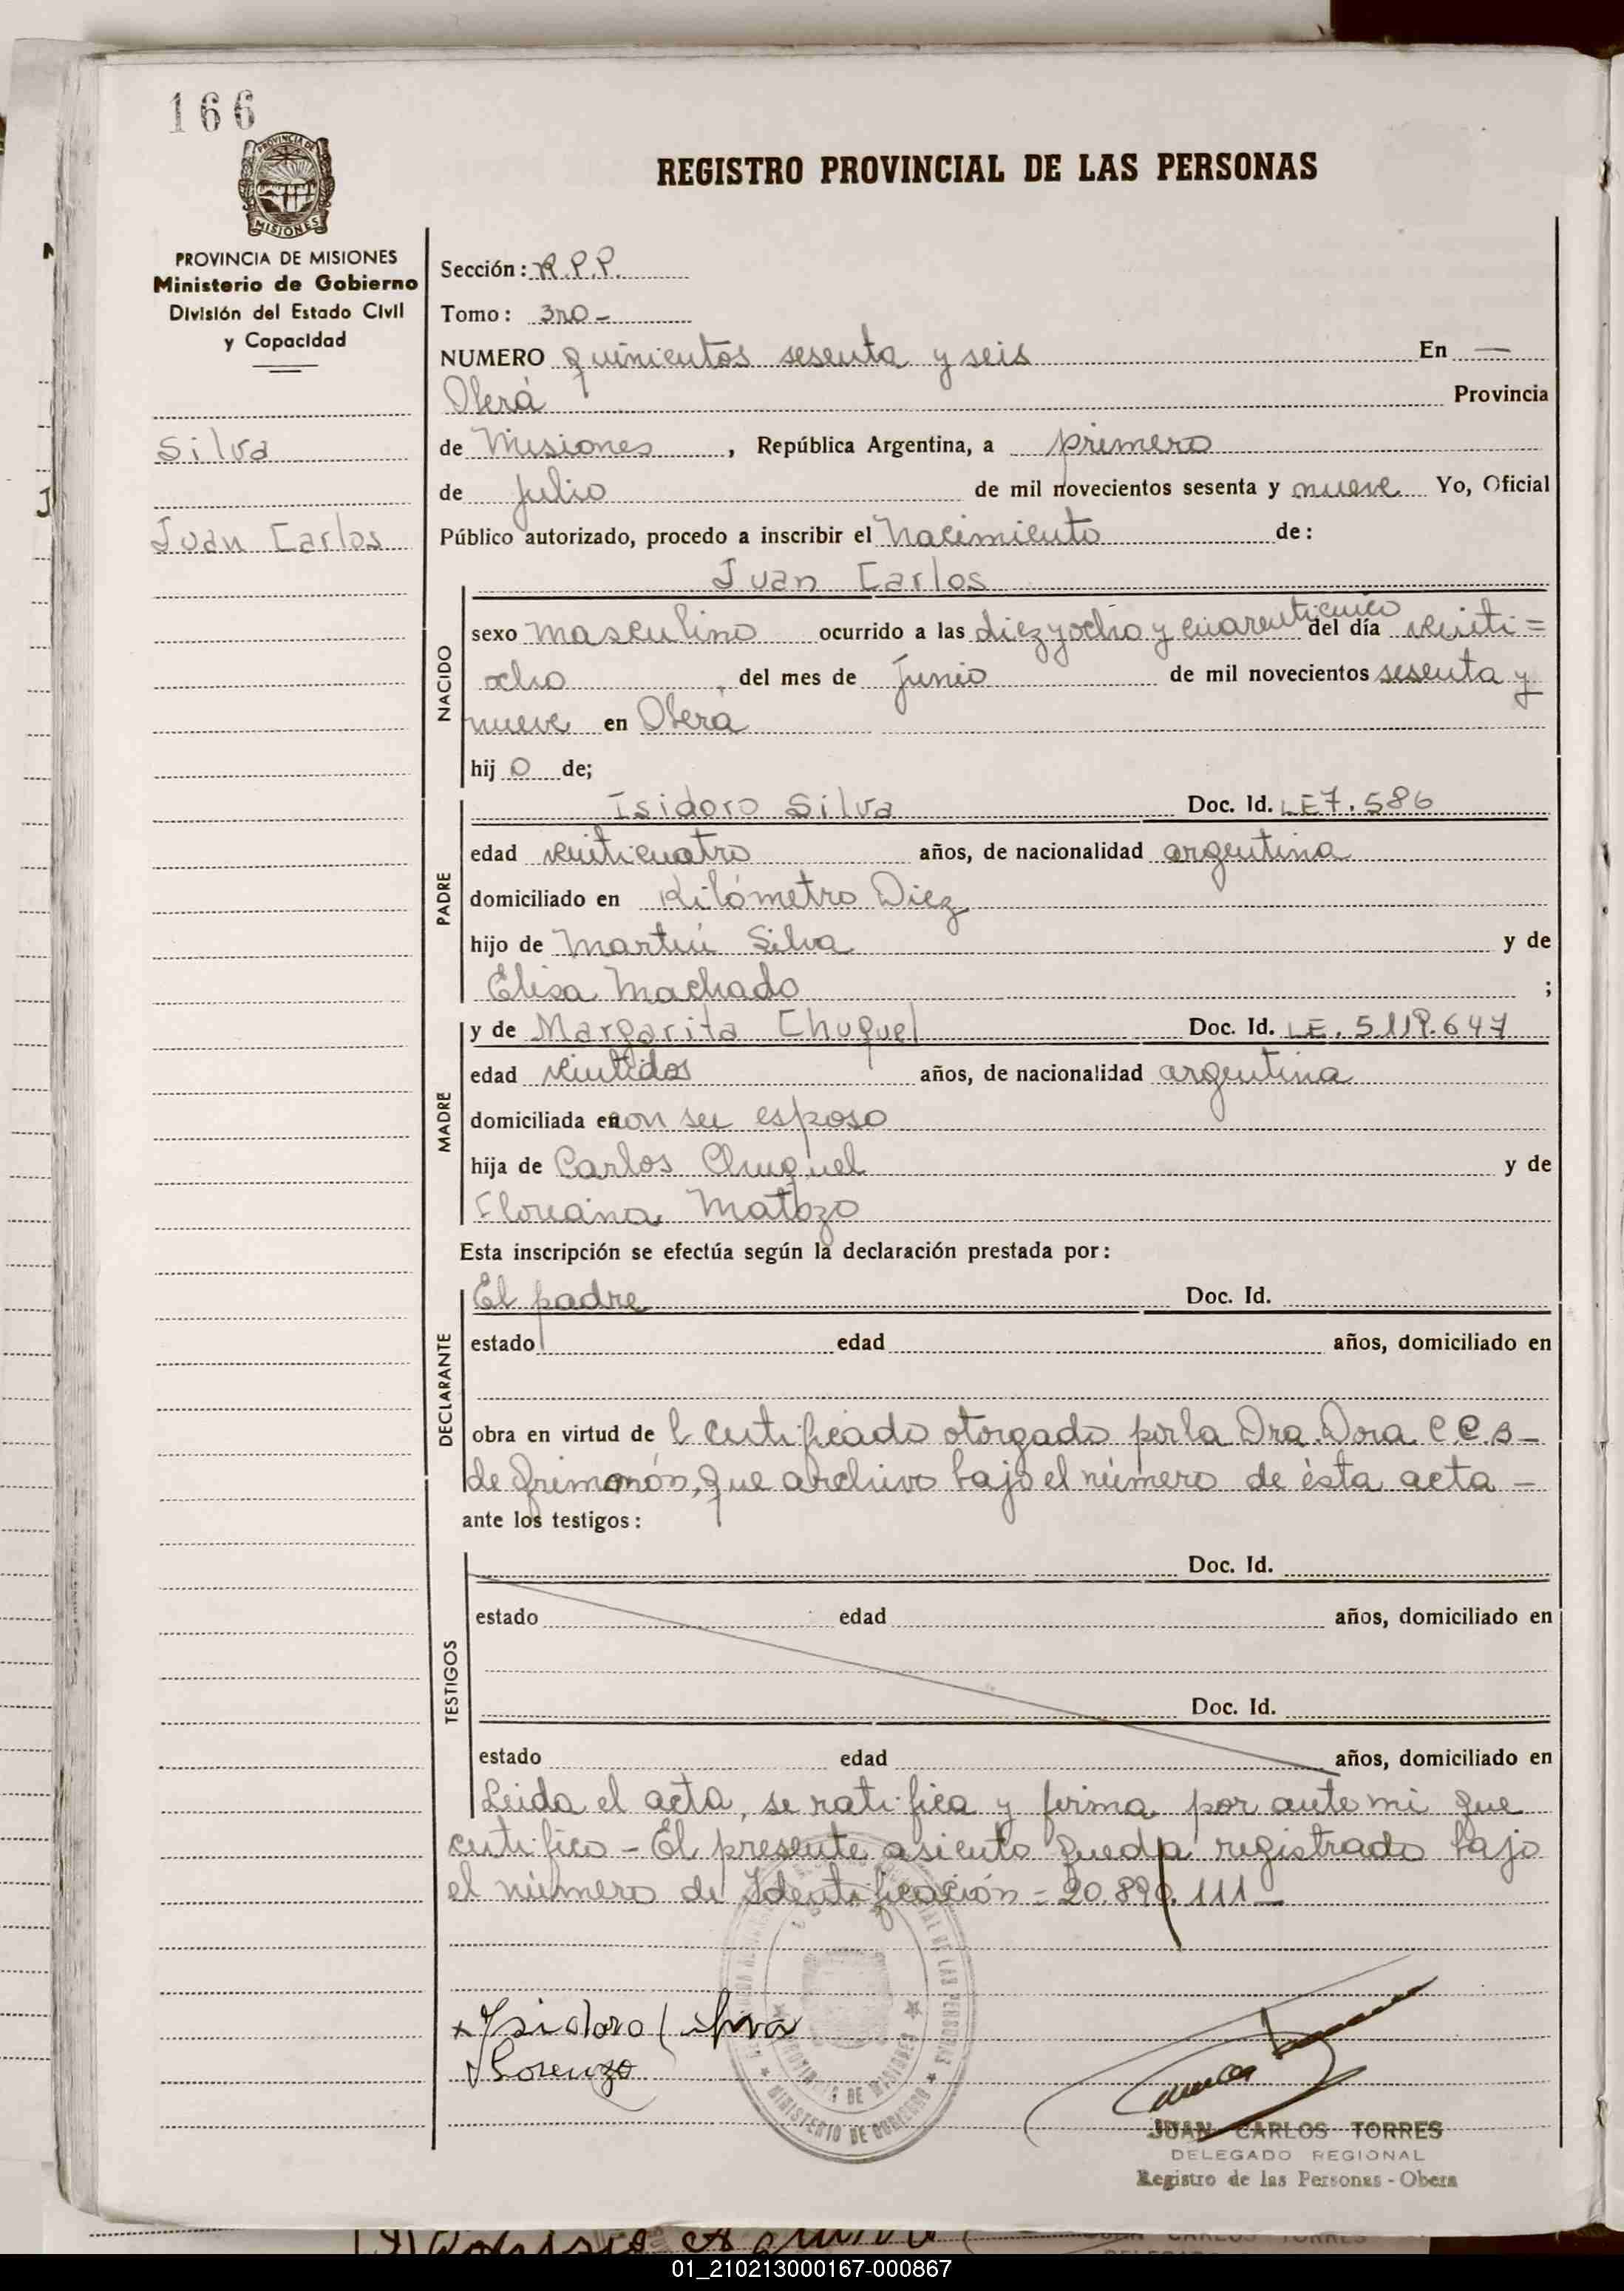 166
REGISTRO PROVINCIAL DE LAS PERSONAS
PROVINCIA DE MISIONES
Ministerio de Gobierno
División del Estado Civil
y Capacidad
Silva
Juan Carlos
Sección: R.P.P.
Tomo: 3ro-
NUMERO quinientos sesenta y seis En —
Oberá Provincia
de Misiones, República Argentina, a primero
de julio de mil novecientos sesenta y nueve Yo, Oficial
Público autorizado, procedo a inscribir el Nacimiento de:
Juan Carlos
NACIDO
sexo masculino ocurrido a las diez y ocho y cuarenticinco del día veinti=
ocho del mes de junio de mil novecientos sesenta y
nueve en Oberá
hijo de;
PADRE
Isidoro Silva Doc. Id. LE 7.586
edad veinticuatro años, de nacionalidad argentina
domiciliado en Kilómetro Diez
hijo de Martín Silva y de
Elisa Machado ;
MADRE
y de Margarita Chuquel Doc. Id. LE. 5.119.647
edad veintidos años, de nacionalidad argentina
domiciliada en con su esposo
hija de Carlos Chuquel y de
Floreana Matozo
Esta inscripción se efectúa según la declaración prestada por:
DECLARANTE
El padre Doc. Id.
estado edad años, domiciliado en
obra en virtud de l certificado otorgado por la Dra. Dora C.C.B-
de que archivo bajo el número de ésta acta -
ante los testigos:
TESTIGOS
Doc. Id.
estado edad años, domiciliado en
Doc. Id.
estado edad años, domiciliado en
Leida el acta, se ratifica y firma por ante mi que
certifico - El presente asiento queda registrado bajo
el número de Identificación = 20.890.111 -
x Isidoro Silva
Lorenzo
PROVINCIA DE MISIONES
MINISTERIO DE GOBIERNO
JUAN CARLOS TORRES
DELEGADO REGIONAL
Registro de las Personas - Obera
01_210213000167-000867